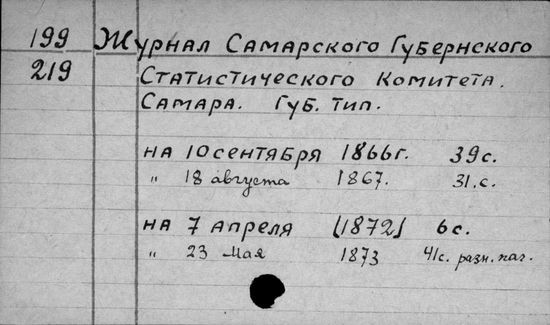 199 Журнал Самарского Губернского
219 Статистического Комитета.
Самара. Губ. тип.
на 10 сентября 1866 г. 39 с.
" 18 августа 1867. 31. с.
на 7 апреля [1872] 6 с.
" 23 мая 1873 41 с. разн. паг.